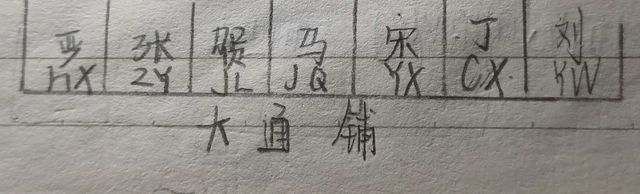 严 张 贺 马 宋 丁 刘
HX ZY JL JQ YX CX KW
大通铺